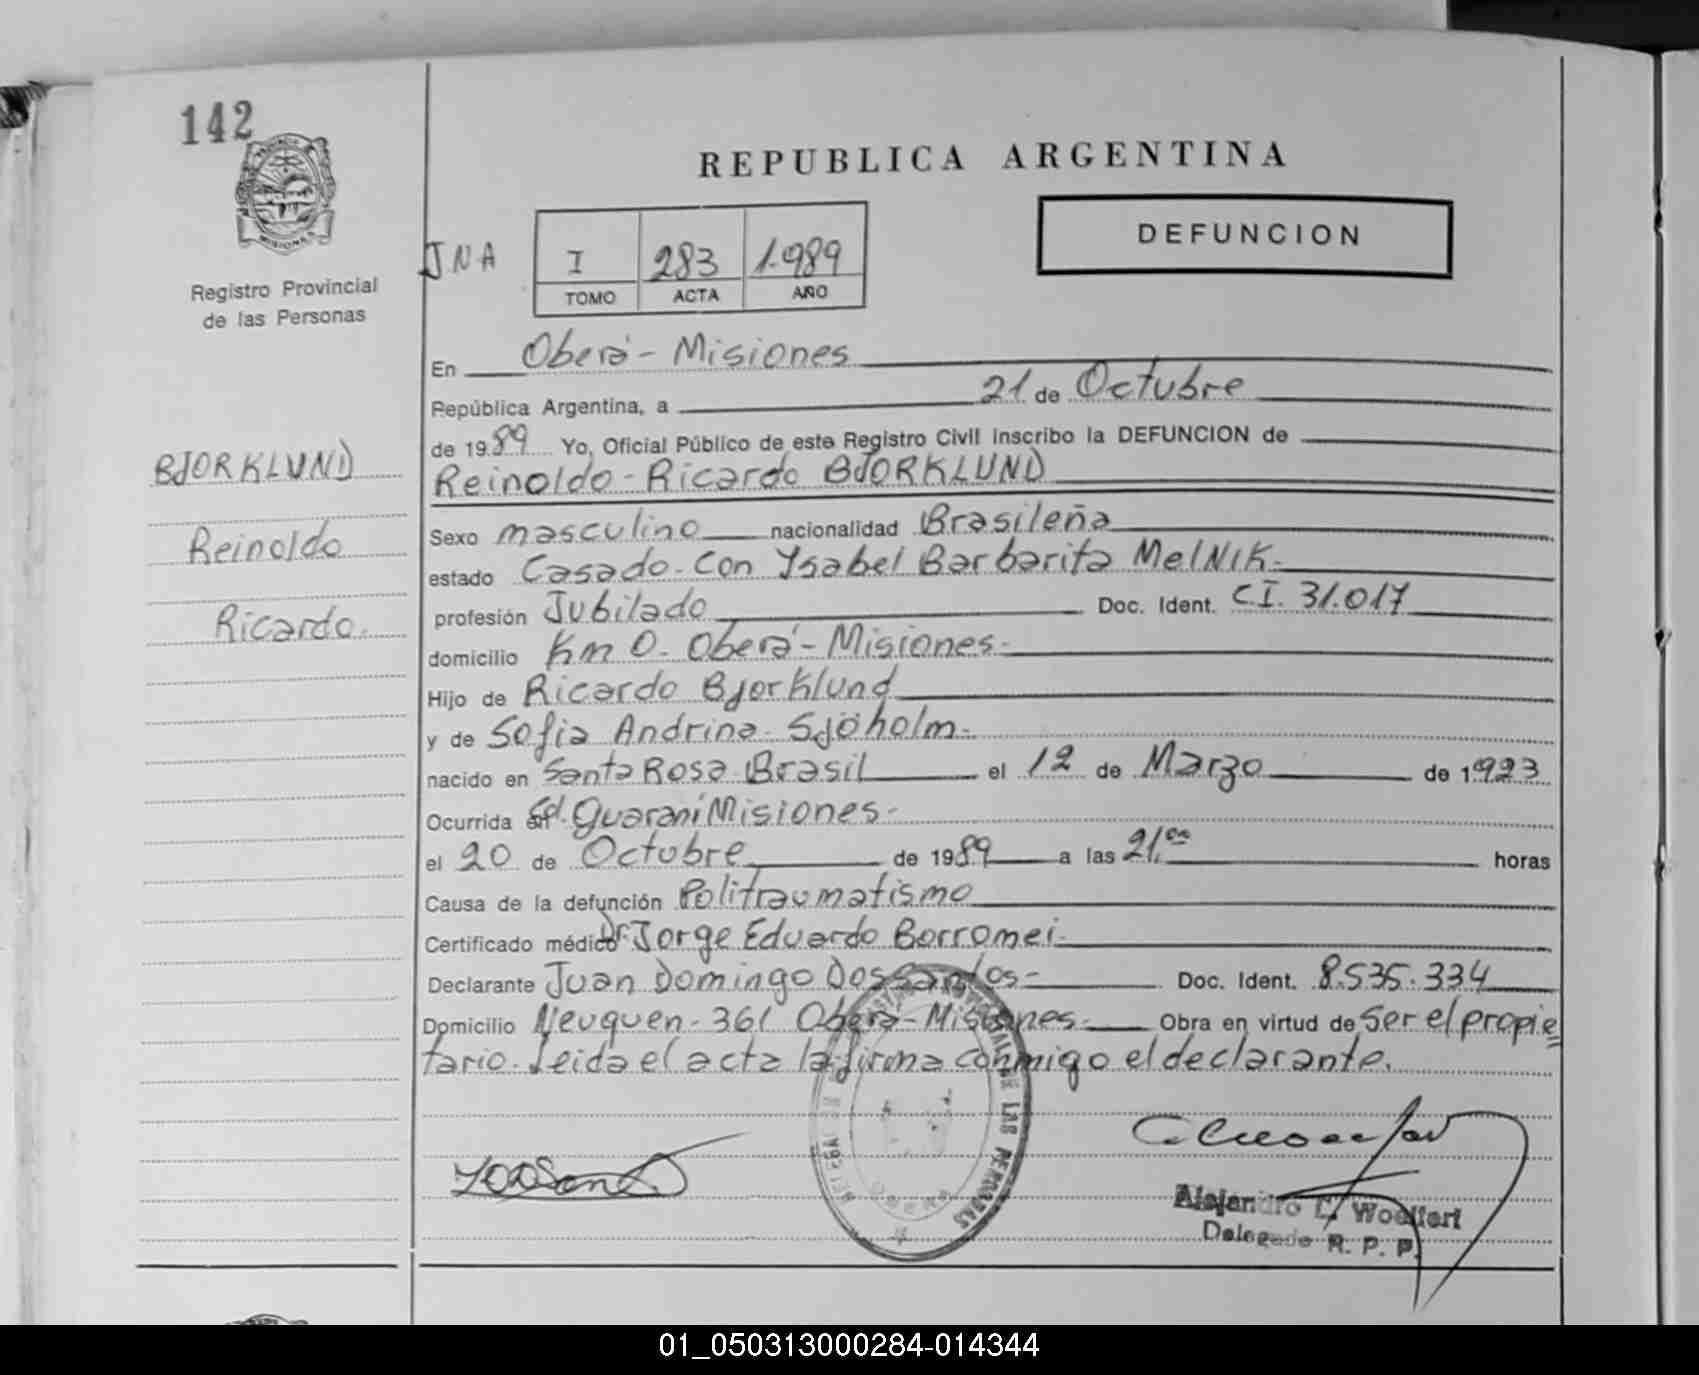 142
PROVINCIA
MISIONES
Registro Provincial
de las Personas
BJORKLUND
Reinoldo
Ricardo.
REPUBLICA ARGENTINA
JNA
I 283 1.989
TOMO ACTA AÑO
DEFUNCION
En Oberá - Misiones
República Argentina, a 21 de Octubre
de 1989 Yo, Oficial Público de este Registro Civil inscribo la DEFUNCION de
Reinoldo - Ricardo BJORKLUND
Sexo masculino nacionalidad Brasileña
estado Casado - Con Ysabel Barbarita MelNIK -
profesión Jubilado Doc. Ident. CI. 31.017
domicilio Km 0 - Oberá - Misiones -
Hijo de Ricardo Bjorklund
y de Sofia Andrina - Sjöholm -
nacido en Santa Rosa - Brasil el 12 de Marzo de 1.923
Ocurrida en Cd. Guaraní Misiones -
el 20 de Octubre de 1989 a las 21,00 horas
Causa de la defunción Politraumatismo
Certificado médico Dr. Jorge Eduardo Borromei -
Declarante Juan Domingo Dos Santos - Doc. Ident. 8.535.334
Domicilio Neuquen - 361 Oberá - Misiones - Obra en virtud de Ser el propie
tario. Leida el acta la firma conmigo el declarante.
DE LAS PERSONAS
Alejandro L. Woelfert
Delegado R. P. P.
01_050313000284-014344